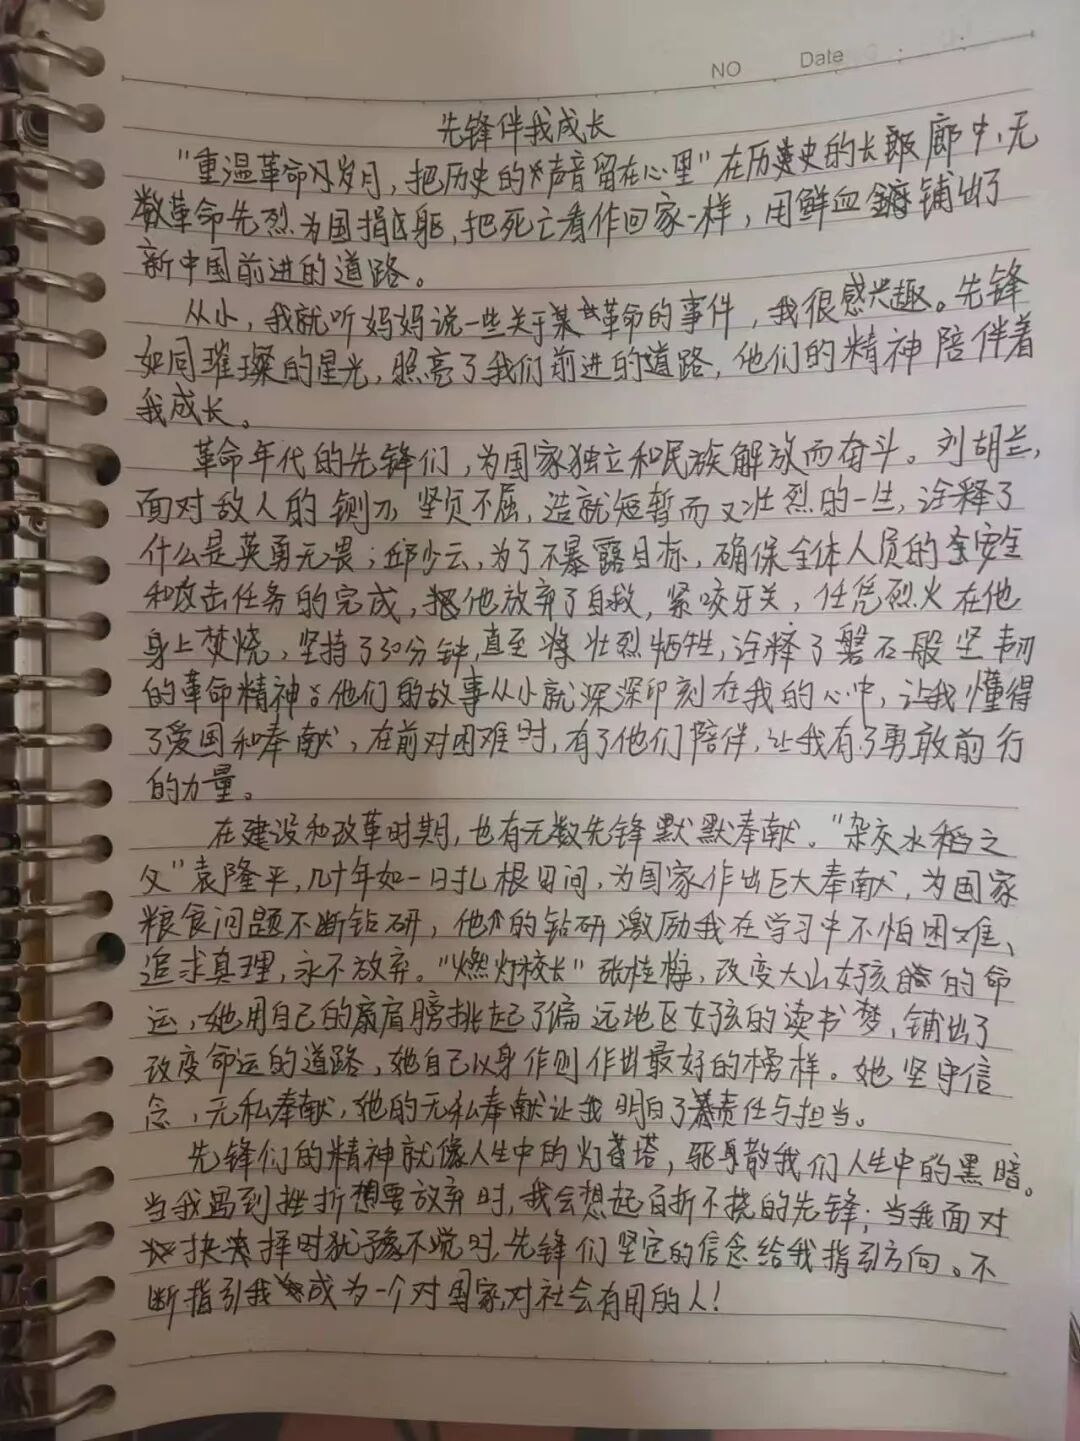 NO Date
先锋伴我成长
"重温革命岁月，把历史的声音留在心里"在历史的长廊中，无
数革命先烈为国捐躯，把死亡看作回家一样，用鲜血铺出了
新中国前进的道路。
从小，我就听妈妈说一些关于革命的事件，我很感兴趣。先锋
如同璀璨的星光，照亮了我们前进的道路，他们的精神陪伴着
我成长。
革命年代的先锋们，为国家独立和民族解放而奋斗。刘胡兰，
面对敌人的铡刀，坚贞不屈，造就短暂而又壮烈的一生，诠释了
什么是英勇无畏；邱少云，为了不暴露目标，确保全体人员的安全
和攻击任务的完成，他放弃了自救，紧咬牙关，任凭烈火在他
身上焚烧，坚持了30分钟，直至壮烈牺牲，诠释了磐石般坚韧
的革命精神。他们的故事从小就深深印刻在我的心中，让我懂得
了爱国和奉献，在前对困难时，有了他们陪伴，让我有了勇敢前行
的力量。
在建设和改革时期，也有无数先锋默默奉献。"杂交水稻之
父"袁隆平，几十年如一日扎根田间，为国家作出巨大奉献，为国家
粮食问题不断钻研，他的钻研激励我在学习中不怕困难、
追求真理，永不放弃。"燃灯校长"张桂梅，改变大山女孩的命
运，她用自己的肩膀挑起了偏远地区女孩的读书梦，铺出了
改变命运的道路，她自己以身作则作出最好的榜样。她坚守信
念，无私奉献，她的无私奉献让我明白了责任与担当。
先锋们的精神就像人生中的灯塔，驱散我们人生中的黑暗。
当我遇到挫折想要放弃时，我会想起百折不挠的先锋；当我面对
抉择时犹豫不觉时，先锋们坚定的信念给我指引方向。不
断指引我成为一个对国家，对社会有用的人！